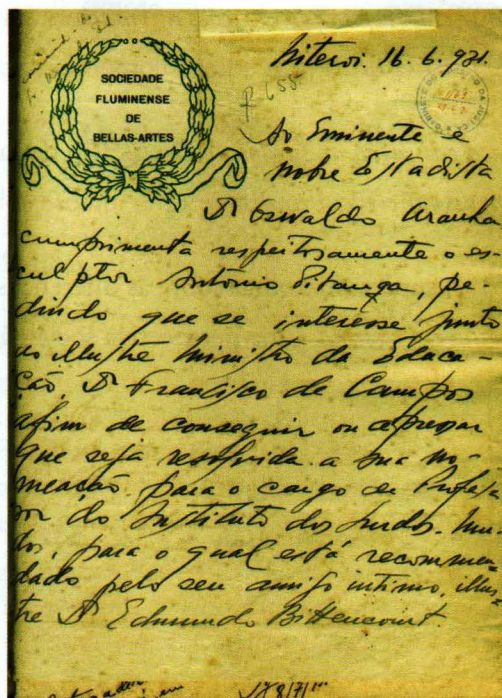 SOCIEDADE
FLUMINENSE
DE
BELLAS-ARTES
Niteroi. 16. 6. 931.
Ao Eminente e
nobre Estadista
Dr Oswaldo Aranha
cumprimenta respeitosamente o es-
culptor Antonio Pitanga, pe-
dindo que se interesse junto
ao illustre Ministro da Educa-
ção Dr Francisco de Campos
afim de conseguir ou apressar
que seja resolvida a sua no-
meação para o cargo de Profes-
sor do Instituto dos Surdos-Mu-
dos, para o qual está recommen-
dado pelo seu amigo intimo, illus-
tre Dr Edmundo Bittencourt.